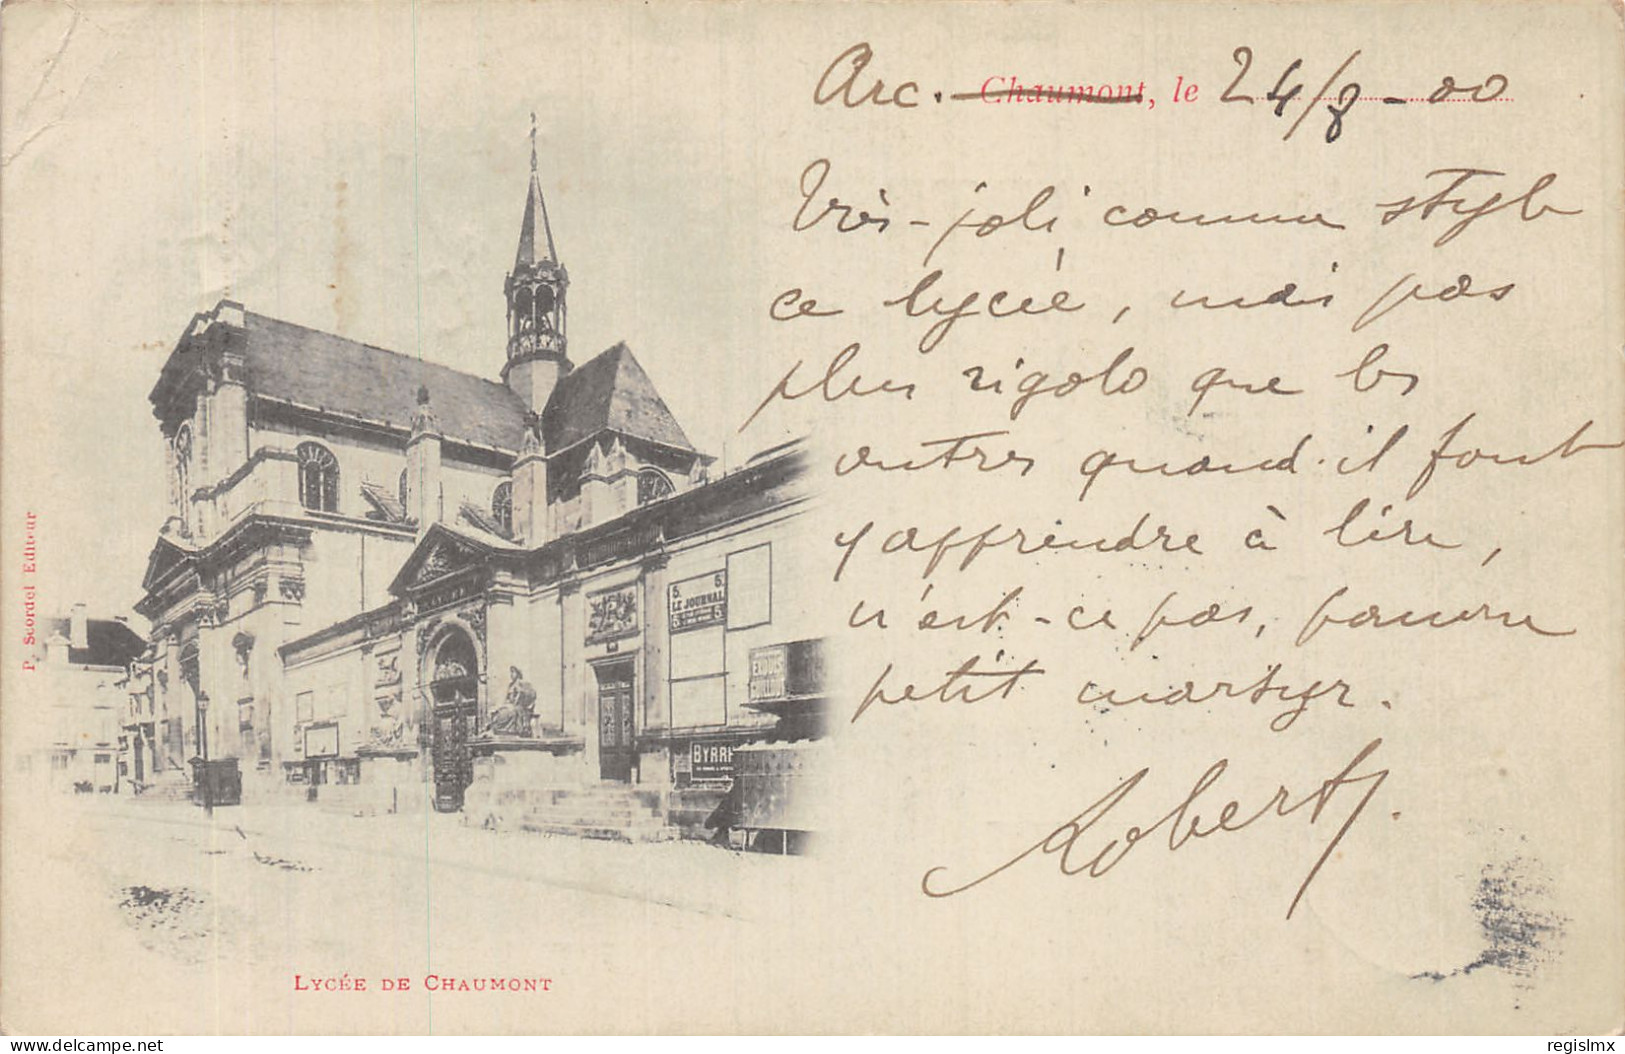 Arc. Chaumont, le 24/8-00
Très-joli comme style
ce lycée, mais pas
plus rigolo que les
autres quand il faut
y apprendre à lire,
n'est-ce pas, pauvre
petit martyr.
Robert.
P. Scordel Editeur
5. 5.
LE JOURNAL
5 5
BYRRH
LYCÉE DE CHAUMONT
www.delcampe.net
regislmx